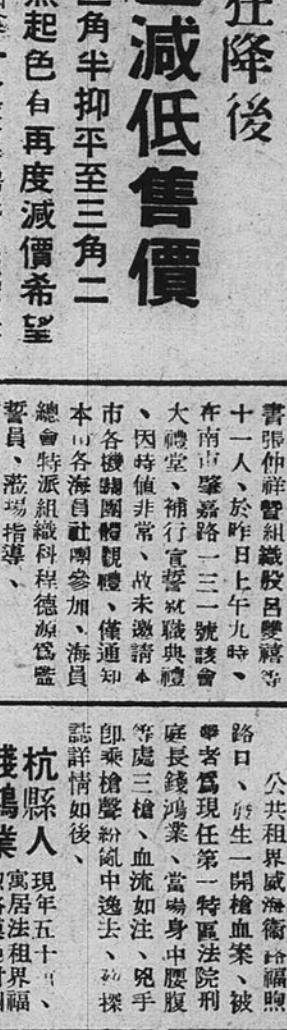 狂降後
減低售價
角半抑平至三角二
起色自再度減價希望
書張仲祥暨組織股呂雙禧等
十一人、於昨日上午九時、
在南市肇嘉路一三一號該會
大禮堂、補行宣誓就職典禮
、因時値非常、故未邀請本
市各機關團體觀禮、僅通知
本市各海員社團參加、海員
總會特派組織科程德源爲監
誓員、蒞場指導、
公共租界威海衛路福煦
路口、發生一開槍血案、被
擊者爲現任第一特區法院刑
庭長錢鴻業、當場身中腰腹
等處三槍、血流如注、兇手
卽乘槍聲紛亂中逸去、探
誌詳情如後、
杭縣人
現年五十、
寓居法租界福
錢鴻業